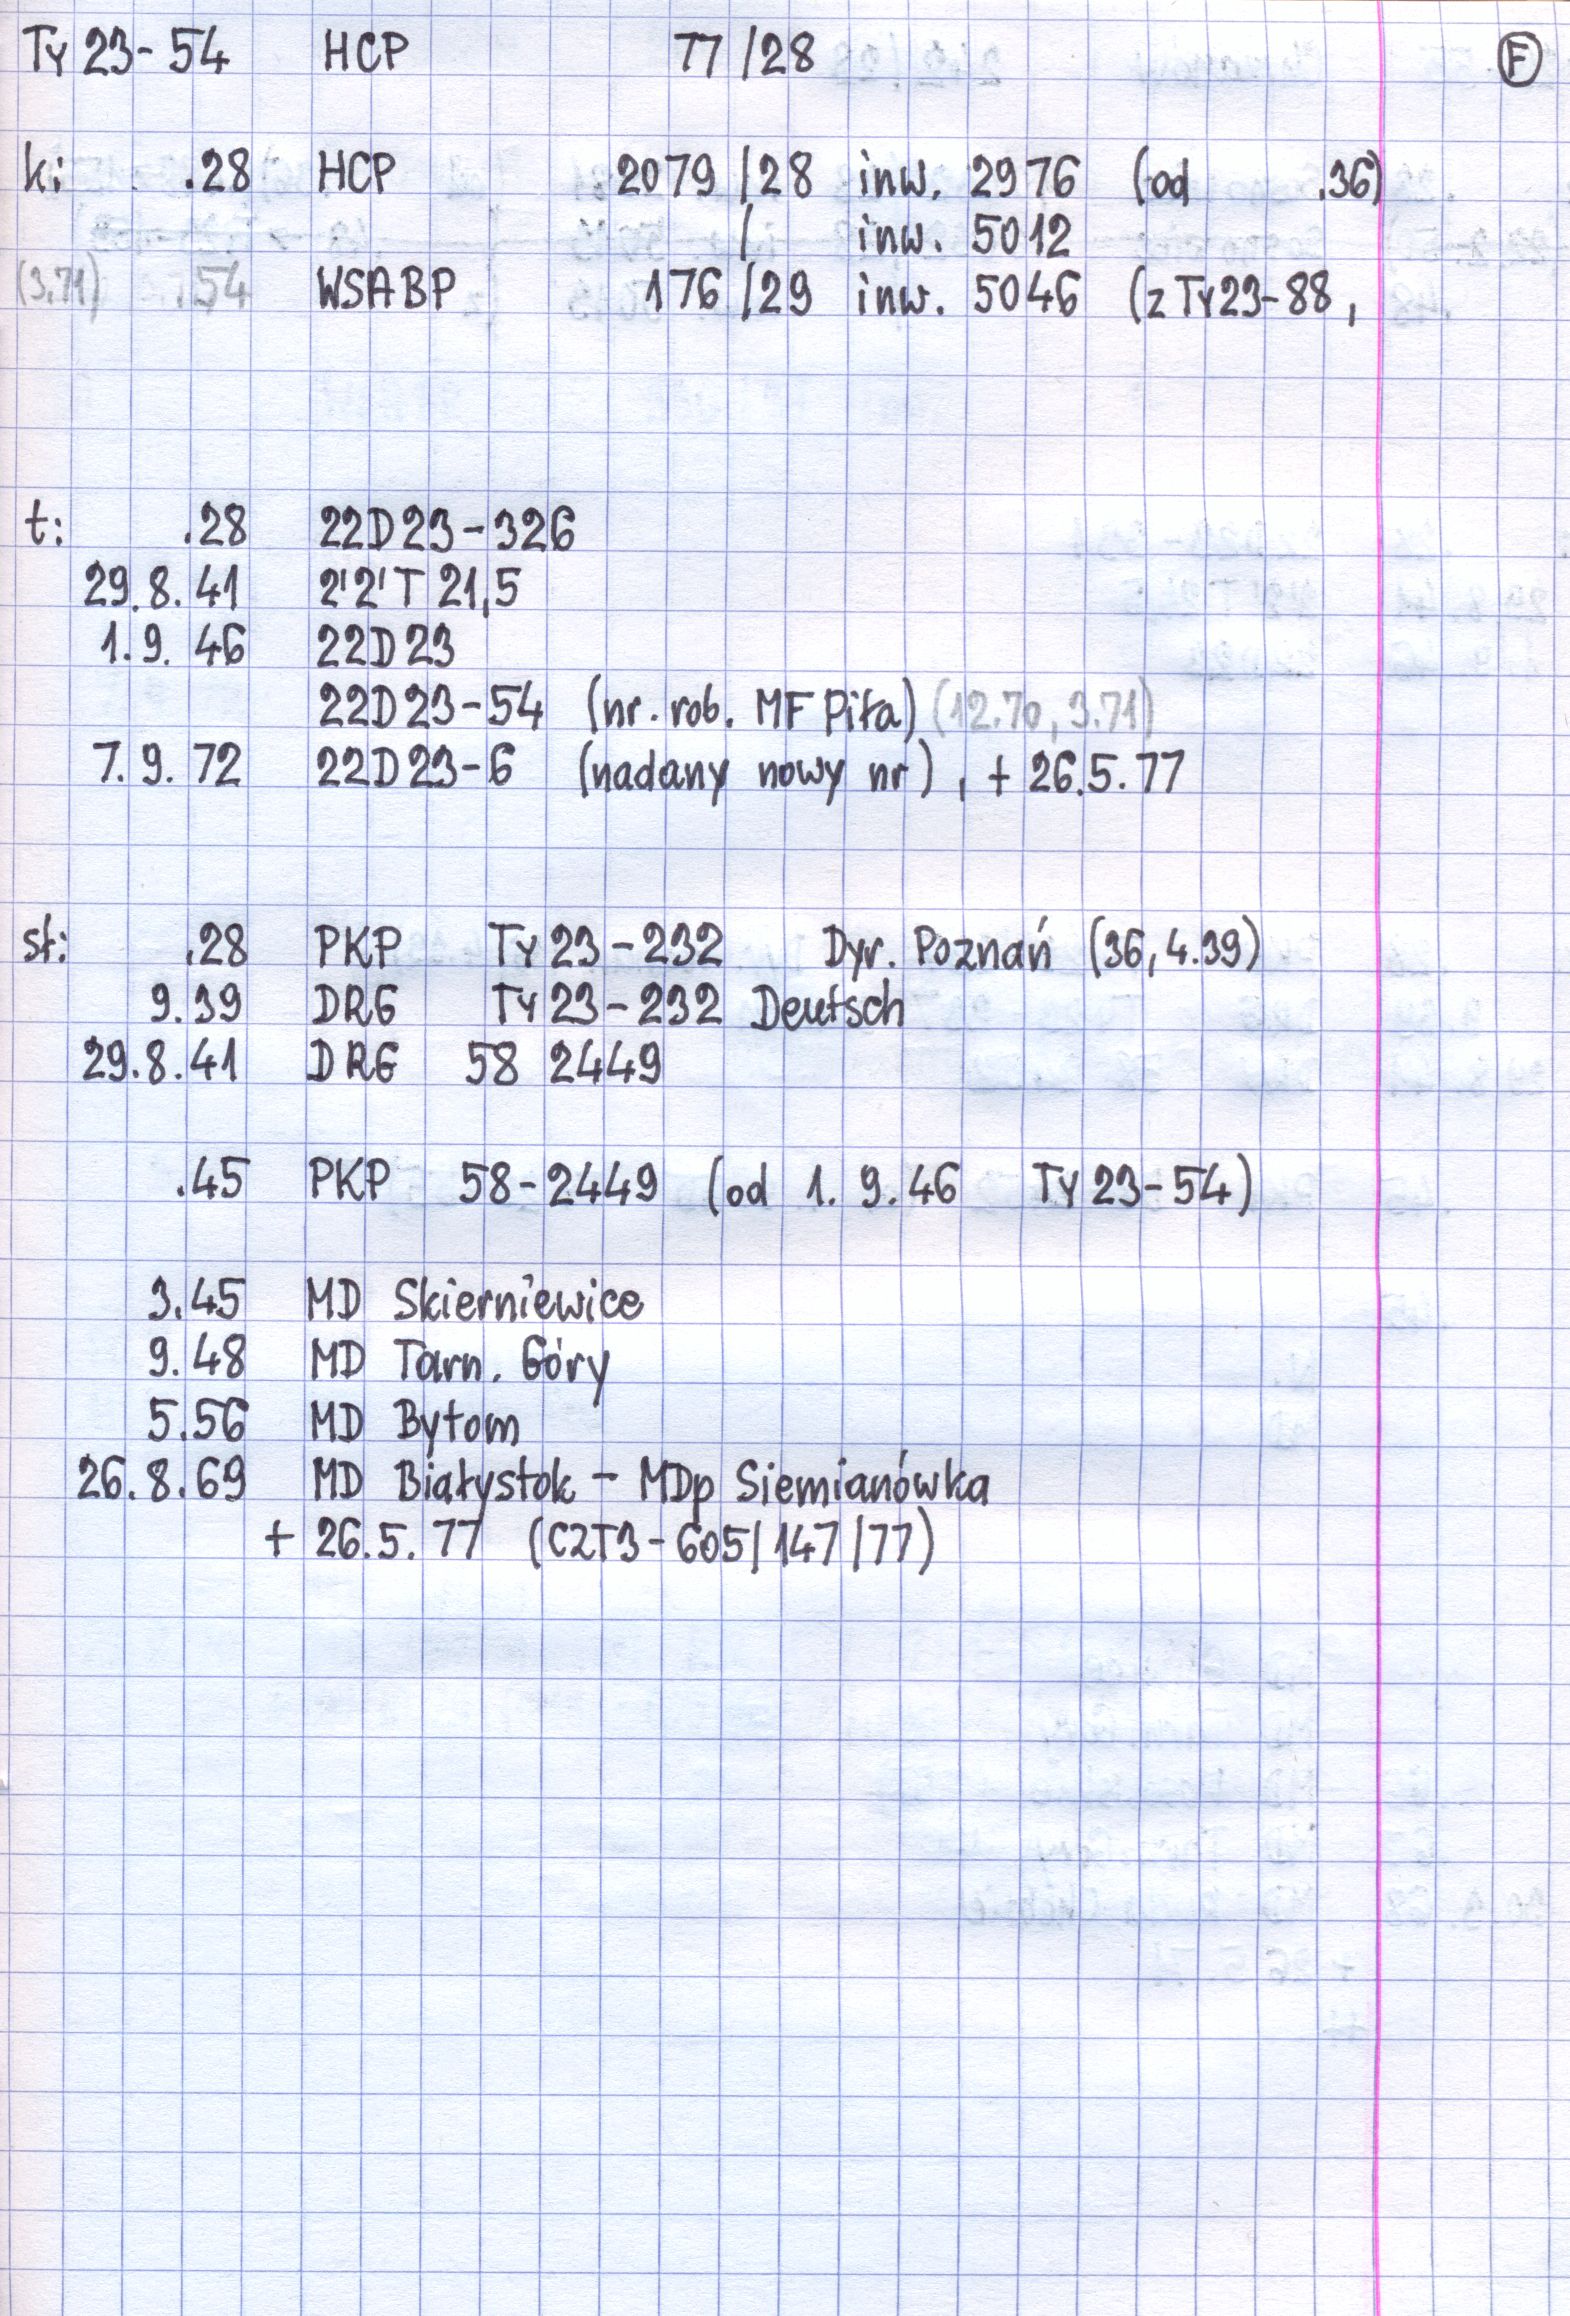 Ty 23-54 HCP 77/28 F
k: .28 HCP 2079/28 inw. 2976 (od .36)
/ inw. 5012
(3.71) .54 WSABP 176/29 inw. 5046 (z Ty23-88,
t: .28 22D23-326
29.8.41 2'2'T 21,5
1.9.46 22D23
22D23-54 (nr. rob. MF Piła) (12.70, 3.71)
7.9.72 22D23-6 (nadany nowy nr), + 26.5.77
sł: .28 PKP Ty23-232 Dyr. Poznań (36, 4.39)
9.39 DRG Ty23-232 Deutsch
29.8.41 DRG 58 2449
.45 PKP 58-2449 (od 1.9.46 Ty23-54)
3.45 MD Skierniewice
9.48 MD Tarn. Góry
5.56 MD Bytom
26.8.69 MD Białystok - MDp Siemianówka
+ 26.5.77 (CZT3-605/147/77)